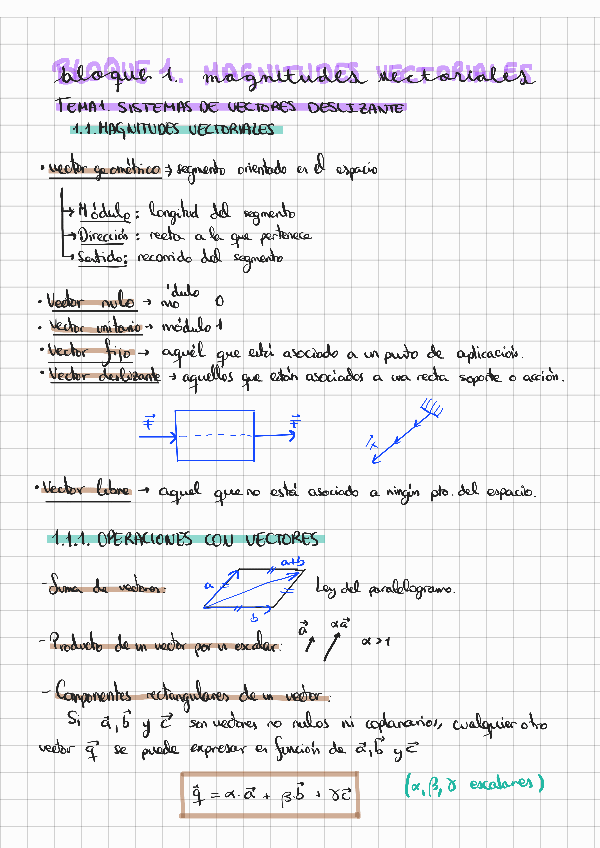 BLOQUE 1. MAGNITUDES VECTORIALES
bloque 1. magnitudes vectoriales
TEMA 1. SISTEMAS DE VECTORES DESLIZANTE
1.1. MAGNITUDES VECTORIALES
• vector geométrico → segmento orientado en el espacio
→ Módulo: longitud del segmento
→ Dirección: recta a la que pertenece
→ Sentido: recorrido del segmento
• Vector nulo → módulo 0
• Vector unitario → módulo 1
• Vector fijo → aquél que está asociado a un punto de aplicación.
• Vector deslizante → aquellos que están asociados a una recta soporte o acción.
F⃗ F⃗
• Vector libre → aquel que no está asociado a ningún pto. del espacio.
1.1.1. OPERACIONES CON VECTORES
- Suma de vectores: a a+b b Ley del paralelogramo.
- Producto de un vector por un escalar: a⃗ αa⃗ α>1
- Componentes rectangulares de un vector:
Si a⃗, b⃗ y c⃗ son vectores no nulos ni coplanarios, cualquier otro
vector q⃗ se puede expresar en función de a⃗, b⃗ y c⃗
q⃗ = α·a⃗ + β·b⃗ + γc⃗ (α, β, γ escalares)